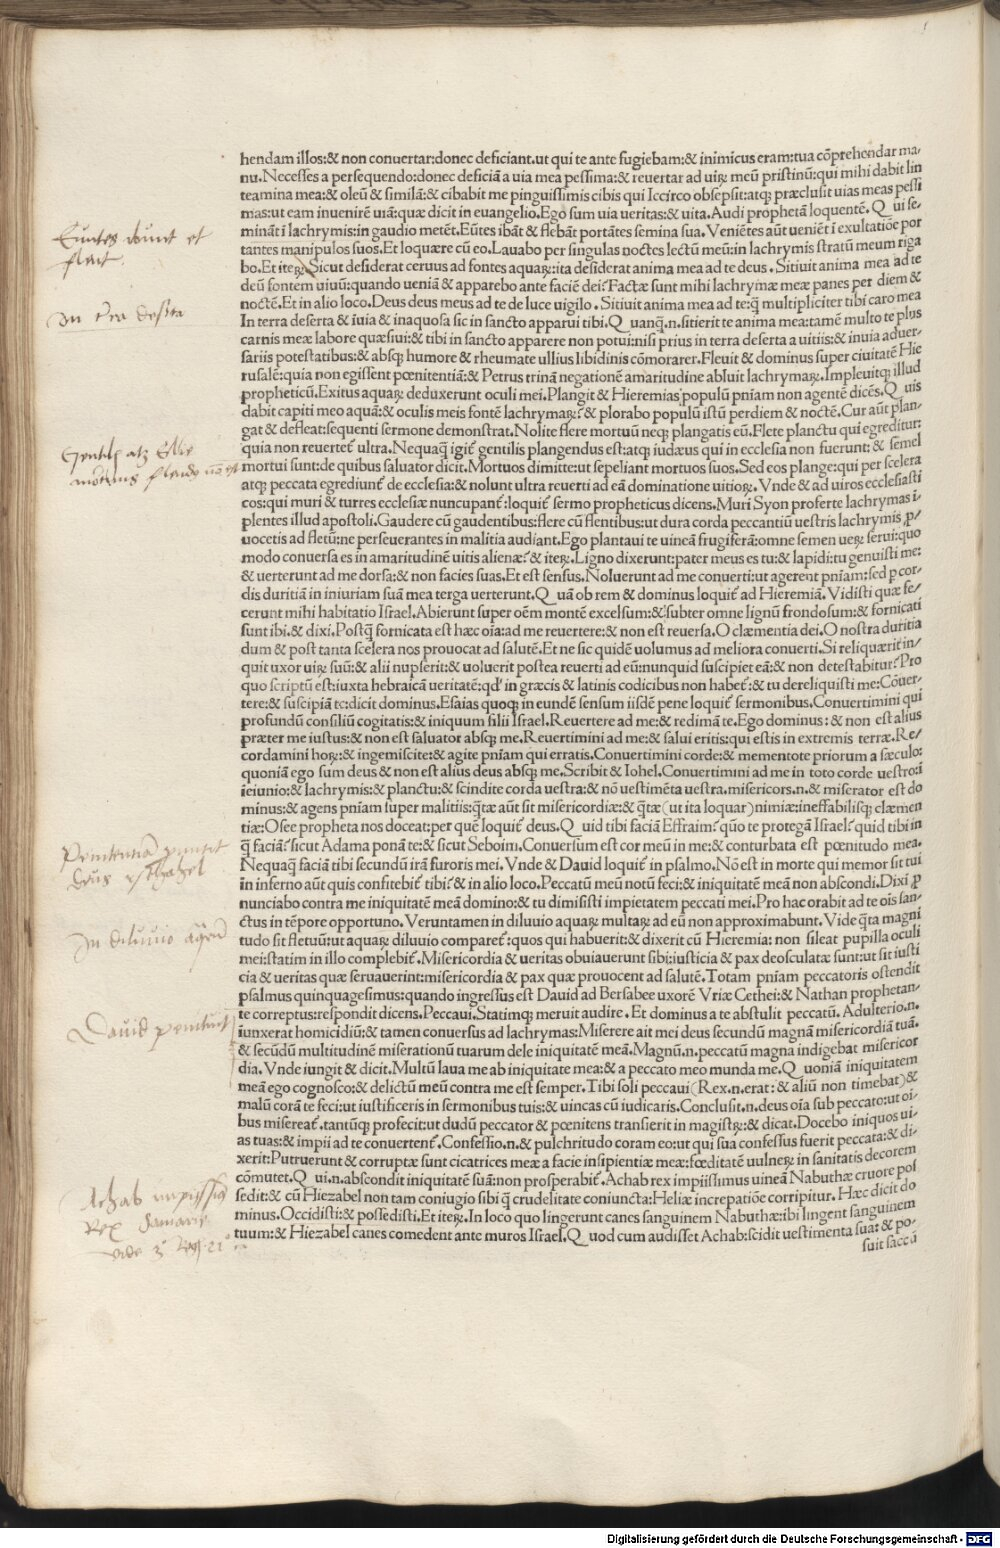 hendam illos:& non conuertar:donec deficiant.ut qui te ante fugiebam:& inimicus eram:tua cōprehendar ma-
nu.Necesses a persequendo:donec deficiā a uia mea pessima:& reuertar ad uiꝝ meū pristinū:qui mihi dabit lin
teamina mea:& oleū & similā:& cibabit me pinguissimis cibis qui Iccirco obsepsit:atqꝫ præclusit uias meas pessi
mas:ut eam inuenirē uiā:quæ dicit in euangelio.Ego sum uia ueritas:& uita.Audi prophetā loquentē.Qui se-
mināt ī lachrymis:in gaudio metēt.Eūtes ibāt & flebāt portātes semina sua.Veniētes aūt ueniēt ī exultatiōe por
tantes manipulos suos.Et loquære cū eo.Lauabo per singulas noctes lectū meū:in lachrymis stratū meum riga
bo.Et iteꝝ.Sicut desiderat ceruus ad fontes aquaꝝ:ita desiderat anima mea ad te deus.Sitiuit anima mea ad te
deū fontem uiuū:quando ueniā & apparebo ante faciē dei?Factæ sunt mihi lachrymæ meæ panes per diem &
noctē.Et in alio loco.Deus deus meus ad te de luce uigilo.Sitiuit anima mea ad te:q̄ multipliciter tibi caro mea
In terra deserta & īuia & inaquosa sic in sancto apparui tibi.Quanq̄.n.sitierit te anima mea:tamē multo te plus
carnis meæ labore quæsiui:& tibi in sancto apparere non potui:nisi prius in terra deserta a uitiis:& inuia aduer-
sariis potestatibus:& absqꝫ humore & rheumate ullius libidinis cōmorarer.Fleuit & dominus super ciuitatē Hie
rusalē:quia non egissent pœnitentiā:& Petrus trinā negationē amaritudine abluit lachrymaꝝ.Impleuitqꝫ illud
propheticū.Exitus aquaꝝ deduxerunt oculi mei.Plangit & Hieremias populū pniam non agentē dicēs.Quis
dabit capiti meo aquā:& oculis meis fontē lachrymaꝝ?& plorabo populū istū perdiem & noctē.Cur aūt plan-
gat & defleat:sequenti sermone demonstrat.Nolite flere mortuū neqꝫ plangatis eū.Flete planctu qui egreditur:
quia non reuerteť ultra.Nequaq̄ igiť gentilis plangendus est:atqꝫ iudæus qui in ecclesia non fuerunt:& semel
mortui sunt:de quibus saluator dicit.Mortuos dimitte:ut sepeliant mortuos suos.Sed eos plange:qui per scelera
atqꝫ peccata egrediunť de ecclesia:& nolunt ultra reuerti ad eā dominatione uitioꝝ.Vnde & ad uiros ecclesiasti
cos:qui muri & turres ecclesiæ nuncupanť:loquiť sermo propheticus dicens.Muri Syon proferte lachrymas ī-
plentes illud apostoli.Gaudere cū gaudentibus:flere cū flentibus:ut dura corda peccantiū uestris lachrymis ꝓ-
uocetis ad fletū:ne perseuerantes in malitia audiant.Ego plantaui te uineā frugiferā:omne semen ueꝝ serui:quo
modo conuersa es in amaritudinē uitis alienæ?& iteꝝ.Ligno dixerunt:pater meus es tu:& lapidi:tu genuisti me:
& uerterunt ad me dorsa:& non facies suas.Et est sensus.Noluerunt ad me conuerti:ut agerent pniam:sed ꝑ cor-
dis duritiā in iniuriam suā mea terga uerterunt.Quā ob rem & dominus loquiť ad Hieremiā.Vidisti quæ fe-
cerunt mihi habitatio Israel.Abierunt super oēm montē excelsum:& subter omne lignū frondosum:& fornicati
sunt ibi.& dixi.Postq̄ fornicata est hæc oīa:ad me reuertere:& non est reuersa.O clæmentia dei.O nostra duritia
dum & post tanta scelera nos prouocat ad salutē.Et ne sic quidē uolumus ad meliora conuerti.Si reliquærit in-
quit uxor uiꝝ suū:& alii nupserit:& uoluerit postea reuerti ad eū:nunquid suscipiet eā:& non detestabitur?Pro
quo scriptū est:iuxta hebraicā ueritatē:qď in græcis & latinis codicibus non habeť:& tu dereliquisti me:Cōuer-
tere:& suscipiā te:dicit dominus.Esaias quoqꝫ in eundē sensum iisdē pene loquiť sermonibus.Conuertimini qui
profundū consiliū cogitatis:& iniquum filii Israel.Reuertere ad me:& redimā te.Ego dominus:& non est alius
præter me iustus:& non est saluator absqꝫ me.Reuertimini ad me:& salui eritis:qui estis in extremis terræ.Re-
cordamini hoꝝ:& ingemiscite:& agite pniam qui erratis.Conuertimini corde:& mementote priorum a sæculo:
quoniā ego sum deus & non est alius deus absqꝫ me.Scribit & Iohel.Conuertimini ad me in toto corde uestro:ī
ieiunio:& lachrymis:& planctu:& scindite corda uestra:& nō uestimēta uestra.misericors.n.& miserator est do
minus:& agens pniam super malitiis:q̄tæ aūt sit misericordiæ:& q̄tæ(ut ita loquar)nimiæ:ineffabilisqꝫ clæmen
tiæ:Osee propheta nos doceat:per quē loquiť deus.Quid tibi faciā Effraim?quō te protegā Israel?quid tibi in
q̄ faciā?sicut Adama ponā te:& sicut Seboim.Conuersum est cor meū in me:& conturbata est pœnitudo mea.
Nequaq̄ faciā tibi secundū irā furoris mei.Vnde & Dauid loquiť in psalmo.Nō est in morte qui memor sit tui
in inferno aūt quis confitebiť tibi?& in alio loco.Peccatū meū notū feci:& iniquitatē meā non abscondi.Dixi ꝓ
nunciabo contra me iniquitatē meā domino:& tu dimisisti impietatem peccati mei.Pro hac orabit ad te oīs san-
ctus in tēpore opportuno.Veruntamen in diluuio aquaꝝ multaꝝ ad eū non approximabunt.Vide q̄ta magni
tudo sit fletuū:ut aquaꝝ diluuio compareť:quos qui habuerit:& dixerit cū Hieremia:non sileat pupilla oculi
mei:statim in illo complebiť.Misericordia & ueritas obuiauerunt sibi:iusticia & pax deosculatæ sunt:ut sit iusti
cia & ueritas quæ seruauerint:misericordia & pax quæ prouocent ad salutē.Totam pniam peccatoris ostendit
psalmus quinquagesimus:quando ingressus est Dauid ad Bersabee uxorē Vriæ Cethei:& Nathan prophetan-
te correptus:respondit dicens.Peccaui.Statimqꝫ meruit audire.Et dominus a te abstulit peccatū.Adulterio.n.
iunxerat homicidiū:& tamen conuersus ad lachrymas:Miserere ait mei deus secundū magnā misericordiā tuā.
& secūdū multitudinē miserationū tuarum dele iniquitatē meā.Magnū.n.peccatū magna indigebat misericor
dia.Vnde iungit & dicit.Multū laua me ab iniquitate mea:& a peccato meo munda me.Quoniā iniquitatem
meā ego cognosco:& delictū meū contra me est semper.Tibi soli peccaui(Rex.n.erat:& aliū non timebat)&
malū corā te feci:ut iustificeris in sermonibus tuis:& uincas cū iudicaris.Conclusit.n.deus oīa sub peccato:ut oī-
bus misereať.tantūqꝫ profecit:ut dudū peccator & pœnitens transierit in magistꝝ:& dicat.Docebo iniquos ui-
as tuas:& impii ad te conuertenť.Confessio.n.& pulchritudo coram eo:ut qui sua confessus fuerit peccata:& di-
xerit:Putruerunt & corruptæ sunt cicatrices meæ a facie insipientiæ meæ:fœditatē uulneꝝ in sanitatis decorem
cōmutet.Qui.n.abscondit iniquitatē suā:non prosperabiť.Achab rex impiissimus uineā Nabuthæ cruore pos
sedit:& cū Hiezabel non tam coniugio sibi q̄ crudelitate coniuncta:Heliæ increpatiōe corripitur.Hæc dicit do
minus.Occidisti:& possedisti.Et iteꝝ.In loco quo lingerunt canes sanguinem Nabuthæ:ibi lingent sanguinem
tuum:& Hiezabel canes comedent ante muros Israel.Quod cum audisset Achab:scidit uestimenta sua:& po-
suit saccū
Euntes ibunt et
In t'ra des'ta
In diluuio
Dauid penituit
Achab
Rex Samarie
Digitalisierung gefördert durch die Deutsche Forschungsgemeinschaft - DFG